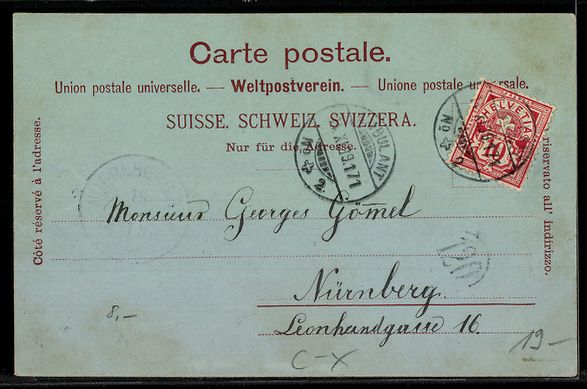 Carte postale.
Union postale universelle. — Weltpostverein. — Unione postale universale.
SUISSE. SCHWEIZ. SVIZZERA.
Nur für die Adresse.
Côté réservé à l'adresse.
riservato all' indirizzo.
HELVETIA
10
AMBULANT
No
Monsieur Georges Gömel
Nürnberg
Leonhardgasse 16.
8,—
C-X
19—